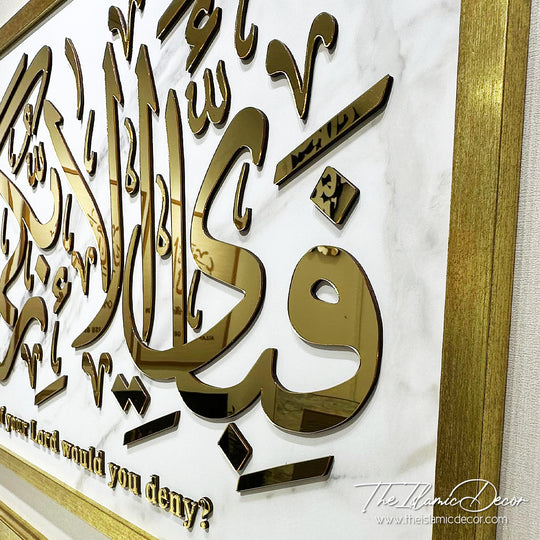 فَبِأَيِّ آلَاءِ رَبِّكُ
your Lord would you deny?
The Islamic Decor
www.theislamicdecor.com